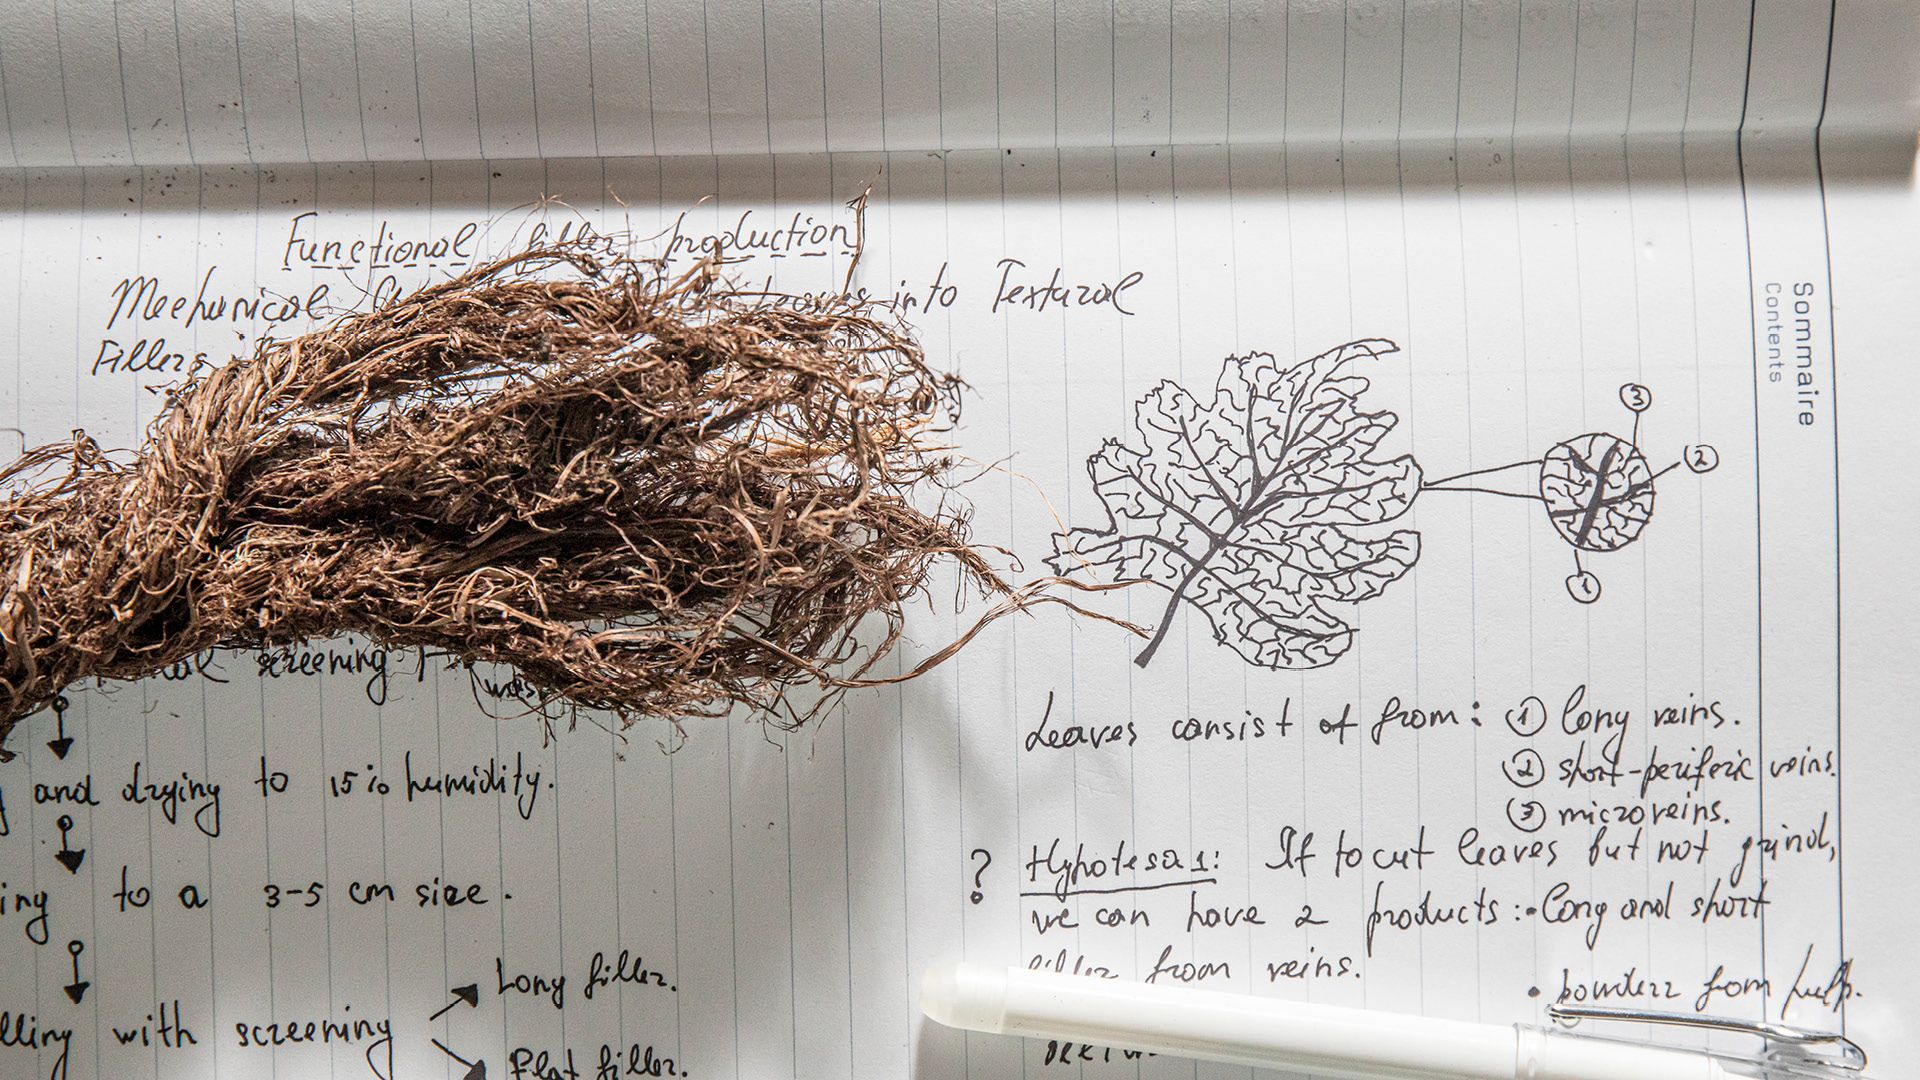 Functional filler production
Mechanical leaves into Textural
Fillers
screening
and drying to 15% humidity.
ing to a 3-5 cm size.
lling with screening
Long filler.
Flat filler.
3
2
1
Leaves consist of from: 1 long veins.
2 short-periferic veins.
3 microveins.
? Hypotesa 1: If to cut leaves but not grind,
we can have 2 products: • Long and short
filler from veins.
• powder from pulp.
Sommaire
Contents